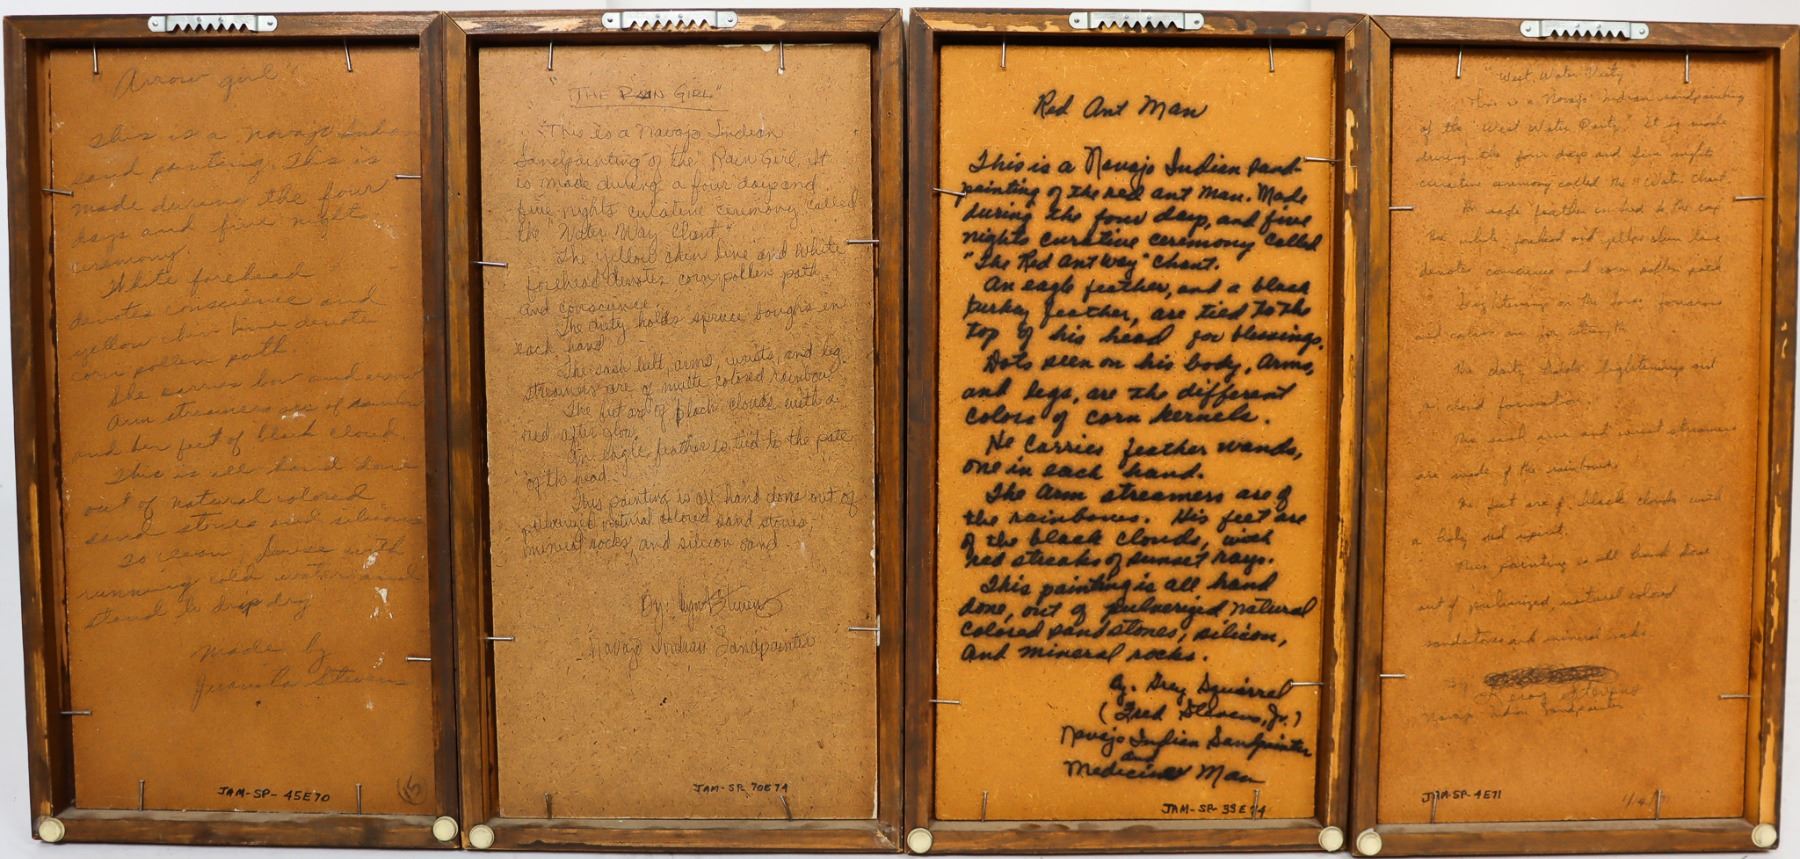 "Arrow girl"
This is a Navajo Indian
sand painting. This is
made during the four
days and five night
ceremony.
White forehead
denotes conscience and
yellow chin line denote
corn pollen path.
She carries bow and arrow
Arm streamers are of rainbow
and her feet of black cloud.
This is all hand done
out of natural colored
sand stones and silicone
To clean, rinse with
running cold water and
stand to drip dry
Made by
Juanita Stevens
JAM-SP-45E70
15
"THE RAIN GIRL"
"This is a Navajo Indian
Sandpainting of the "Rain Girl, It
is made during a four days and
five nights curative ceremony called
the "Water Way Chant"
The yellow chin line and white
forehead denotes corn pollen path
and conscience.
The diety holds spruce boughs in
each hand
The sash belt, arms, waists, and leg
streamers are of multi colored rainbow
The feet are of black clouds with a
red after glow.
An eagle feather is tied to the pate
of the head.
This painting is all hand done out of
pulverized natural colored sand stones,
mineral rocks, and silicon sand.
By: Stevens
Navajo Indian Sandpainter
JAM-SP-70E74
Red Ant Man
This is a Navajo Indian sand-
painting of the red ant Man. Made
during the four day, and five
nights curative ceremony called
"The Red Ant Way" Chant.
An eagle feather, and a black
turkey feather, are tied to the
top of his head for blessings.
Dots seen on his body, Arms,
and legs, are the different
colors of corn kernels.
He carries feather wands,
one in each hand.
The Arm streamers are of
the rainbows. His feet are
of the black clouds, with
red streaks of sunset rays.
This painting is all hand
done, out of pulverized natural
colored sandstones, silicon,
and mineral rocks.
By: Grey Squirrel
(Fred Stevens, Jr.)
Navajo Indian Sandpainter
and
Medicine Man
JAM-SP-39E74
"West Water Diety
This is a Navajo Indian sandpainting
of the "West Water Diety." It is made
during the four days and five nights
curative ceremony called the "Water Chant.
An eagle feather is tied to the cap
white forehead and yellow chin line
denotes conscience and corn pollen path
Lightenings on the
and are for strength
The diety holds lightenings and
a cloud formation.
The sash arm and waist streamers
are made of the rainbows
The feet are of black clouds with
a holy red spirit.
This painting is all hand done
out of pulverized, natural colored
sandstones and mineral rocks
By
Stevens
Navajo Indian Sandpainter
JAM-SP-4E71